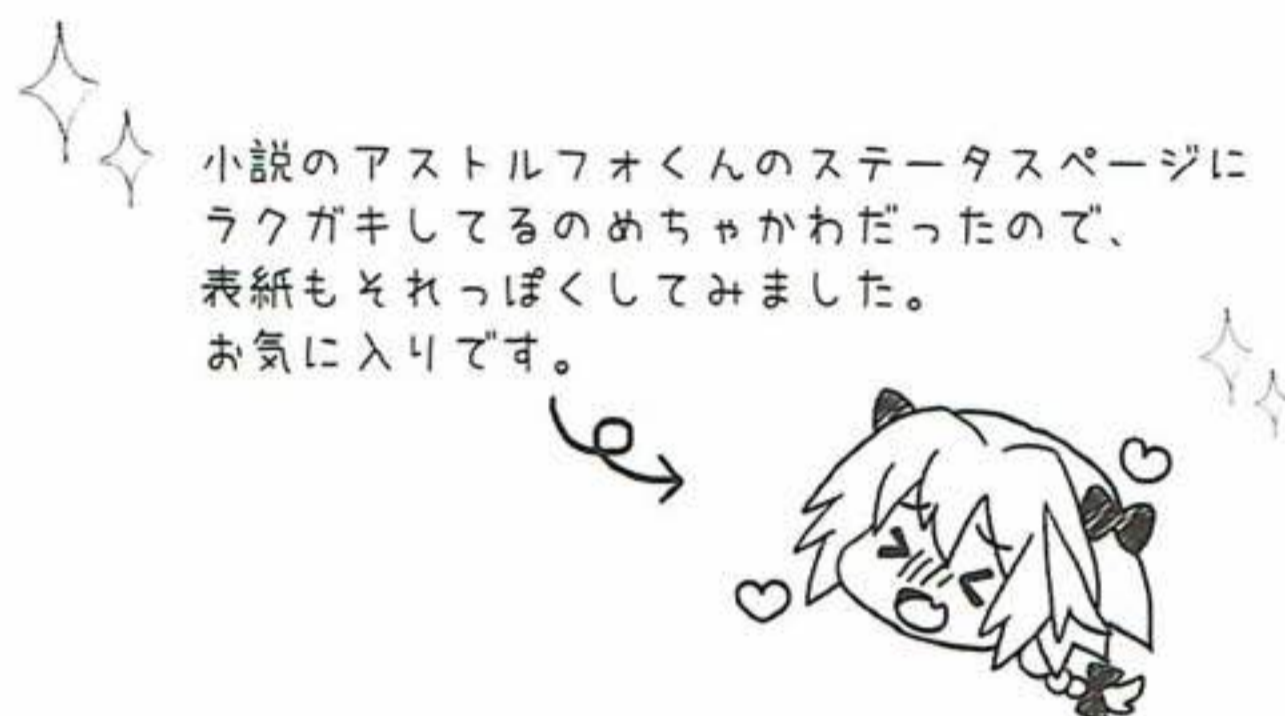 小説のアストルフォくんのステータスページに
ラクガキしてるのめちゃかわだったので、
表紙もそれっぽくしてみました。
お気に入りです。